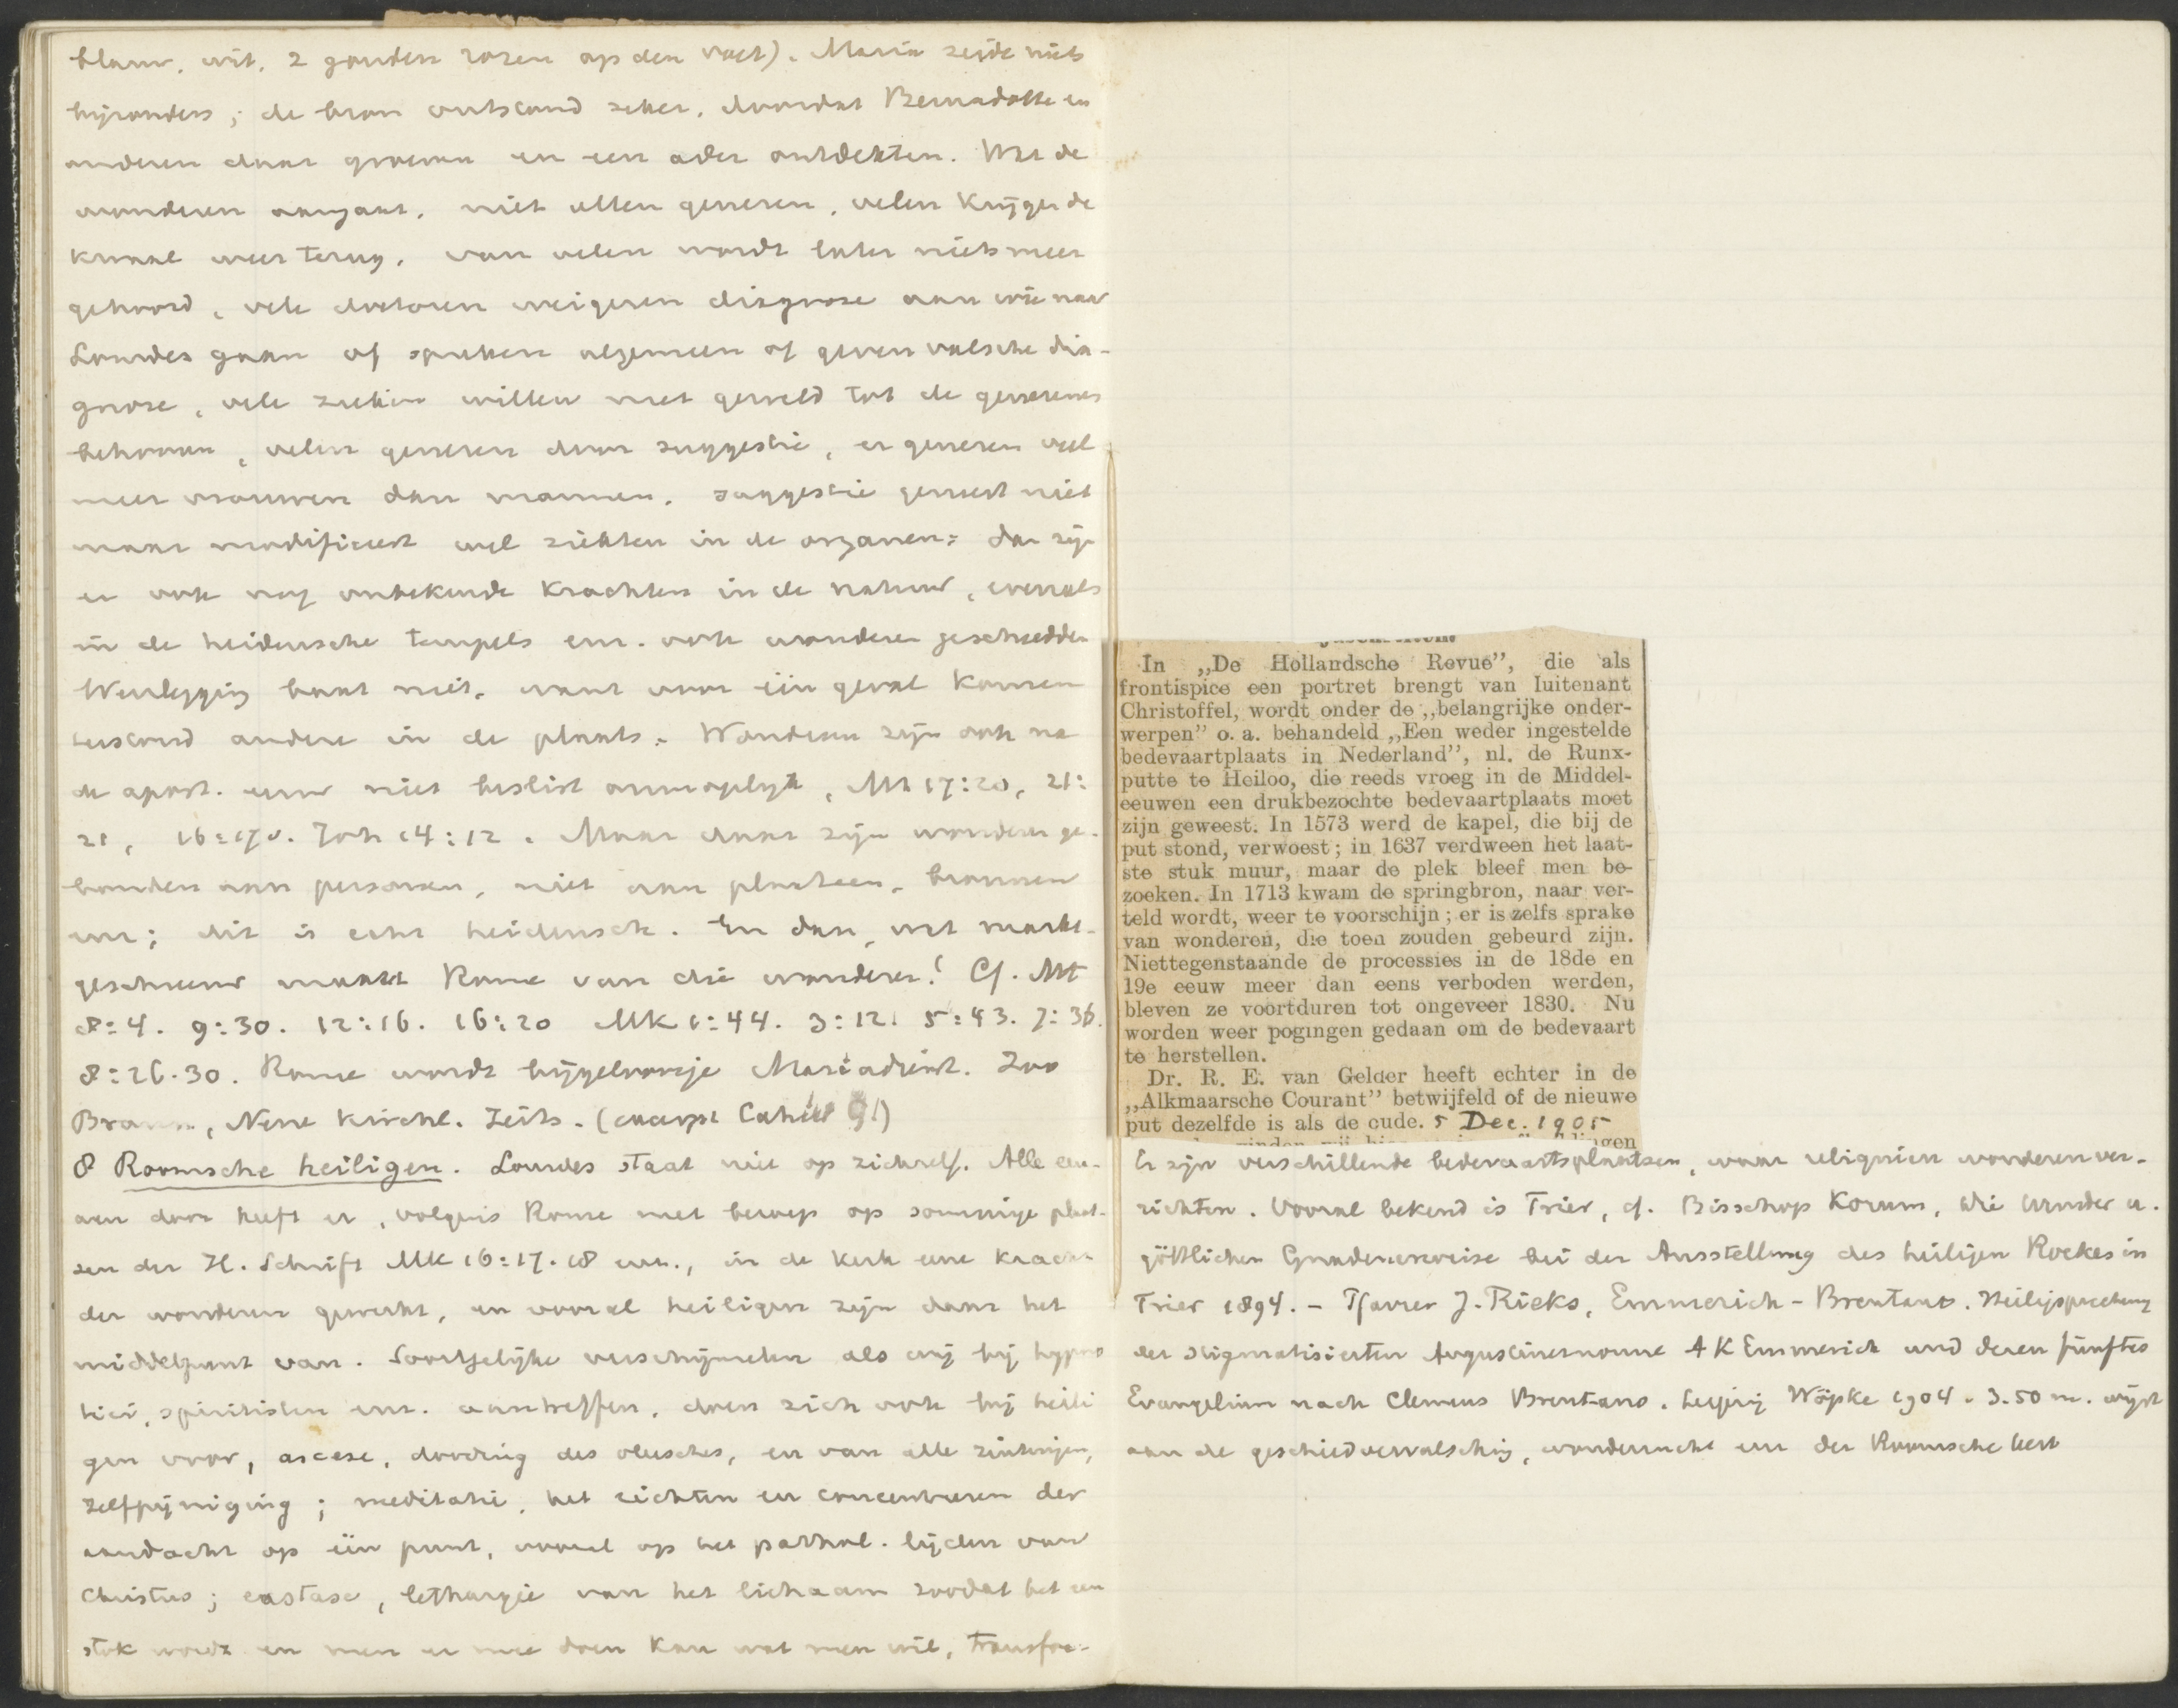 blauw, wit, 2 gouden rozen op den voet). Maria zeide niets
bijzonders; de bron ontstond zeker, doordat Bernadette en
anderen daar groeven en een ader ontdekten. Wat de
wonderen aangaat, niet allen genezen, velen krijgen de
kwaal weer terug, van velen wordt later niets meer
gehoord, vele doctoren weigeren diagnose aan wie naar
Lourdes gaan of spreken algemeen of geven valsche dia-
gnose, vele zieken willen met geweld tot de genezenen
behooren, velen genezen door suggestie, er genezen veel
meer vrouwen dan mannen, suggestie geneest niet
maar modificeert wel ziekten in de organen: dan zijn
er ook nog onbekende krachten in de natuur, evenals
in de heidensche tempels enz. ook wonderen geschiedden
Weerlegging baat niet, want voor één geval komen
terstond andere in de plaats. Wonderen zijn ook na
de apost. eeuw niet beslist onmogelijk, Mt 17:20, 21:
21, 16:17v. Joh 14:12. Maar daar zijn wonderen ge-
bonden aan personen, niet aan plaatsen, bronnen
enz; dit is echt heidensch. En dan, wat markt-
geschreeuw maakt Rome van die wonderen! Cf. Mt
8:4. 9:30. 12:16. 16:20 Mk 1:44. 3:12. 5:43. 7:36.
8:26.30. Rome wordt bijgeloovige Mariadienst. Zoo
Braun, Neue Kirchl. Zeits. (excerpt Cahier 91)
8 Roomsche heiligen. Lourdes staat niet op zichzelf. Alle eeu-
wen door heeft er, volgens Rome met beroep op sommige plaat-
sen der H. Schrift Mk 16:17.18 enz., in de kerk eene kracht
der wonderen gewerkt, en vooral heiligen zijn daar het
middelpunt van. Soortgelijke verschijnselen als wij bij hypno
tici, spiritisten enz. aantreffen, doen zich ook bij heili
gen voor, ascese, dooding des vleesches, en van alle zinnen,
zelfpijniging; meditatie, het richten en concentreeren der
aandacht op één punt, vooral op het lijden van
Christus; exstase, lethargie van het lichaam zoodat het een
stok wordt en men er mee doen kan wat men wil, transfor-
In „De Hollandsche Revue”, die als
frontispice een portret brengt van luitenant
Christoffel, wordt onder de „belangrijke onder-
werpen” o. a. behandeld „Een weder ingestelde
bedevaartplaats in Nederland”, nl. de Runx-
putte te Heiloo, die reeds vroeg in de Middel-
eeuwen een drukbezochte bedevaartplaats moet
zijn geweest. In 1573 werd de kapel, die bij de
put stond, verwoest; in 1637 verdween het laat-
ste stuk muur, maar de plek bleef men be-
zoeken. In 1713 kwam de springbron, naar ver-
teld wordt, weer te voorschijn; er is zelfs sprake
van wonderen, die toen zouden gebeurd zijn.
Niettegenstaande de processies in de 18de en
19e eeuw meer dan eens verboden werden,
bleven ze voortduren tot ongeveer 1830. Nu
worden weer pogingen gedaan om de bedevaart
te herstellen.
Dr. R. E. van Gelder heeft echter in de
„Alkmaarsche Courant” betwijfeld of de nieuwe
put dezelfde is als de oude. 5 Dec. 1905
Er zijn verschillende bedevaartsplaatsen, waar reliquien wonderen ver-
richten. Vooral bekend is Trier, cf. Bisschop Korum, Die Wunder u.
göttlichen Gnadenerweise bei der Ausstellung des heiligen Rockes in
Trier 1894. – Pfarrer J. Rieks, Emmerich-Brentano. Heiligsprechung
der stigmatisierten Augustinernonne A K Emmerich und deren fünftes
Evangelium nach Clemens Brentano. Leipzig Wöpke 1904. 3.50 m. wijst
aan de geschiedvervalsching, wonderzucht enz der Roomsche kerk